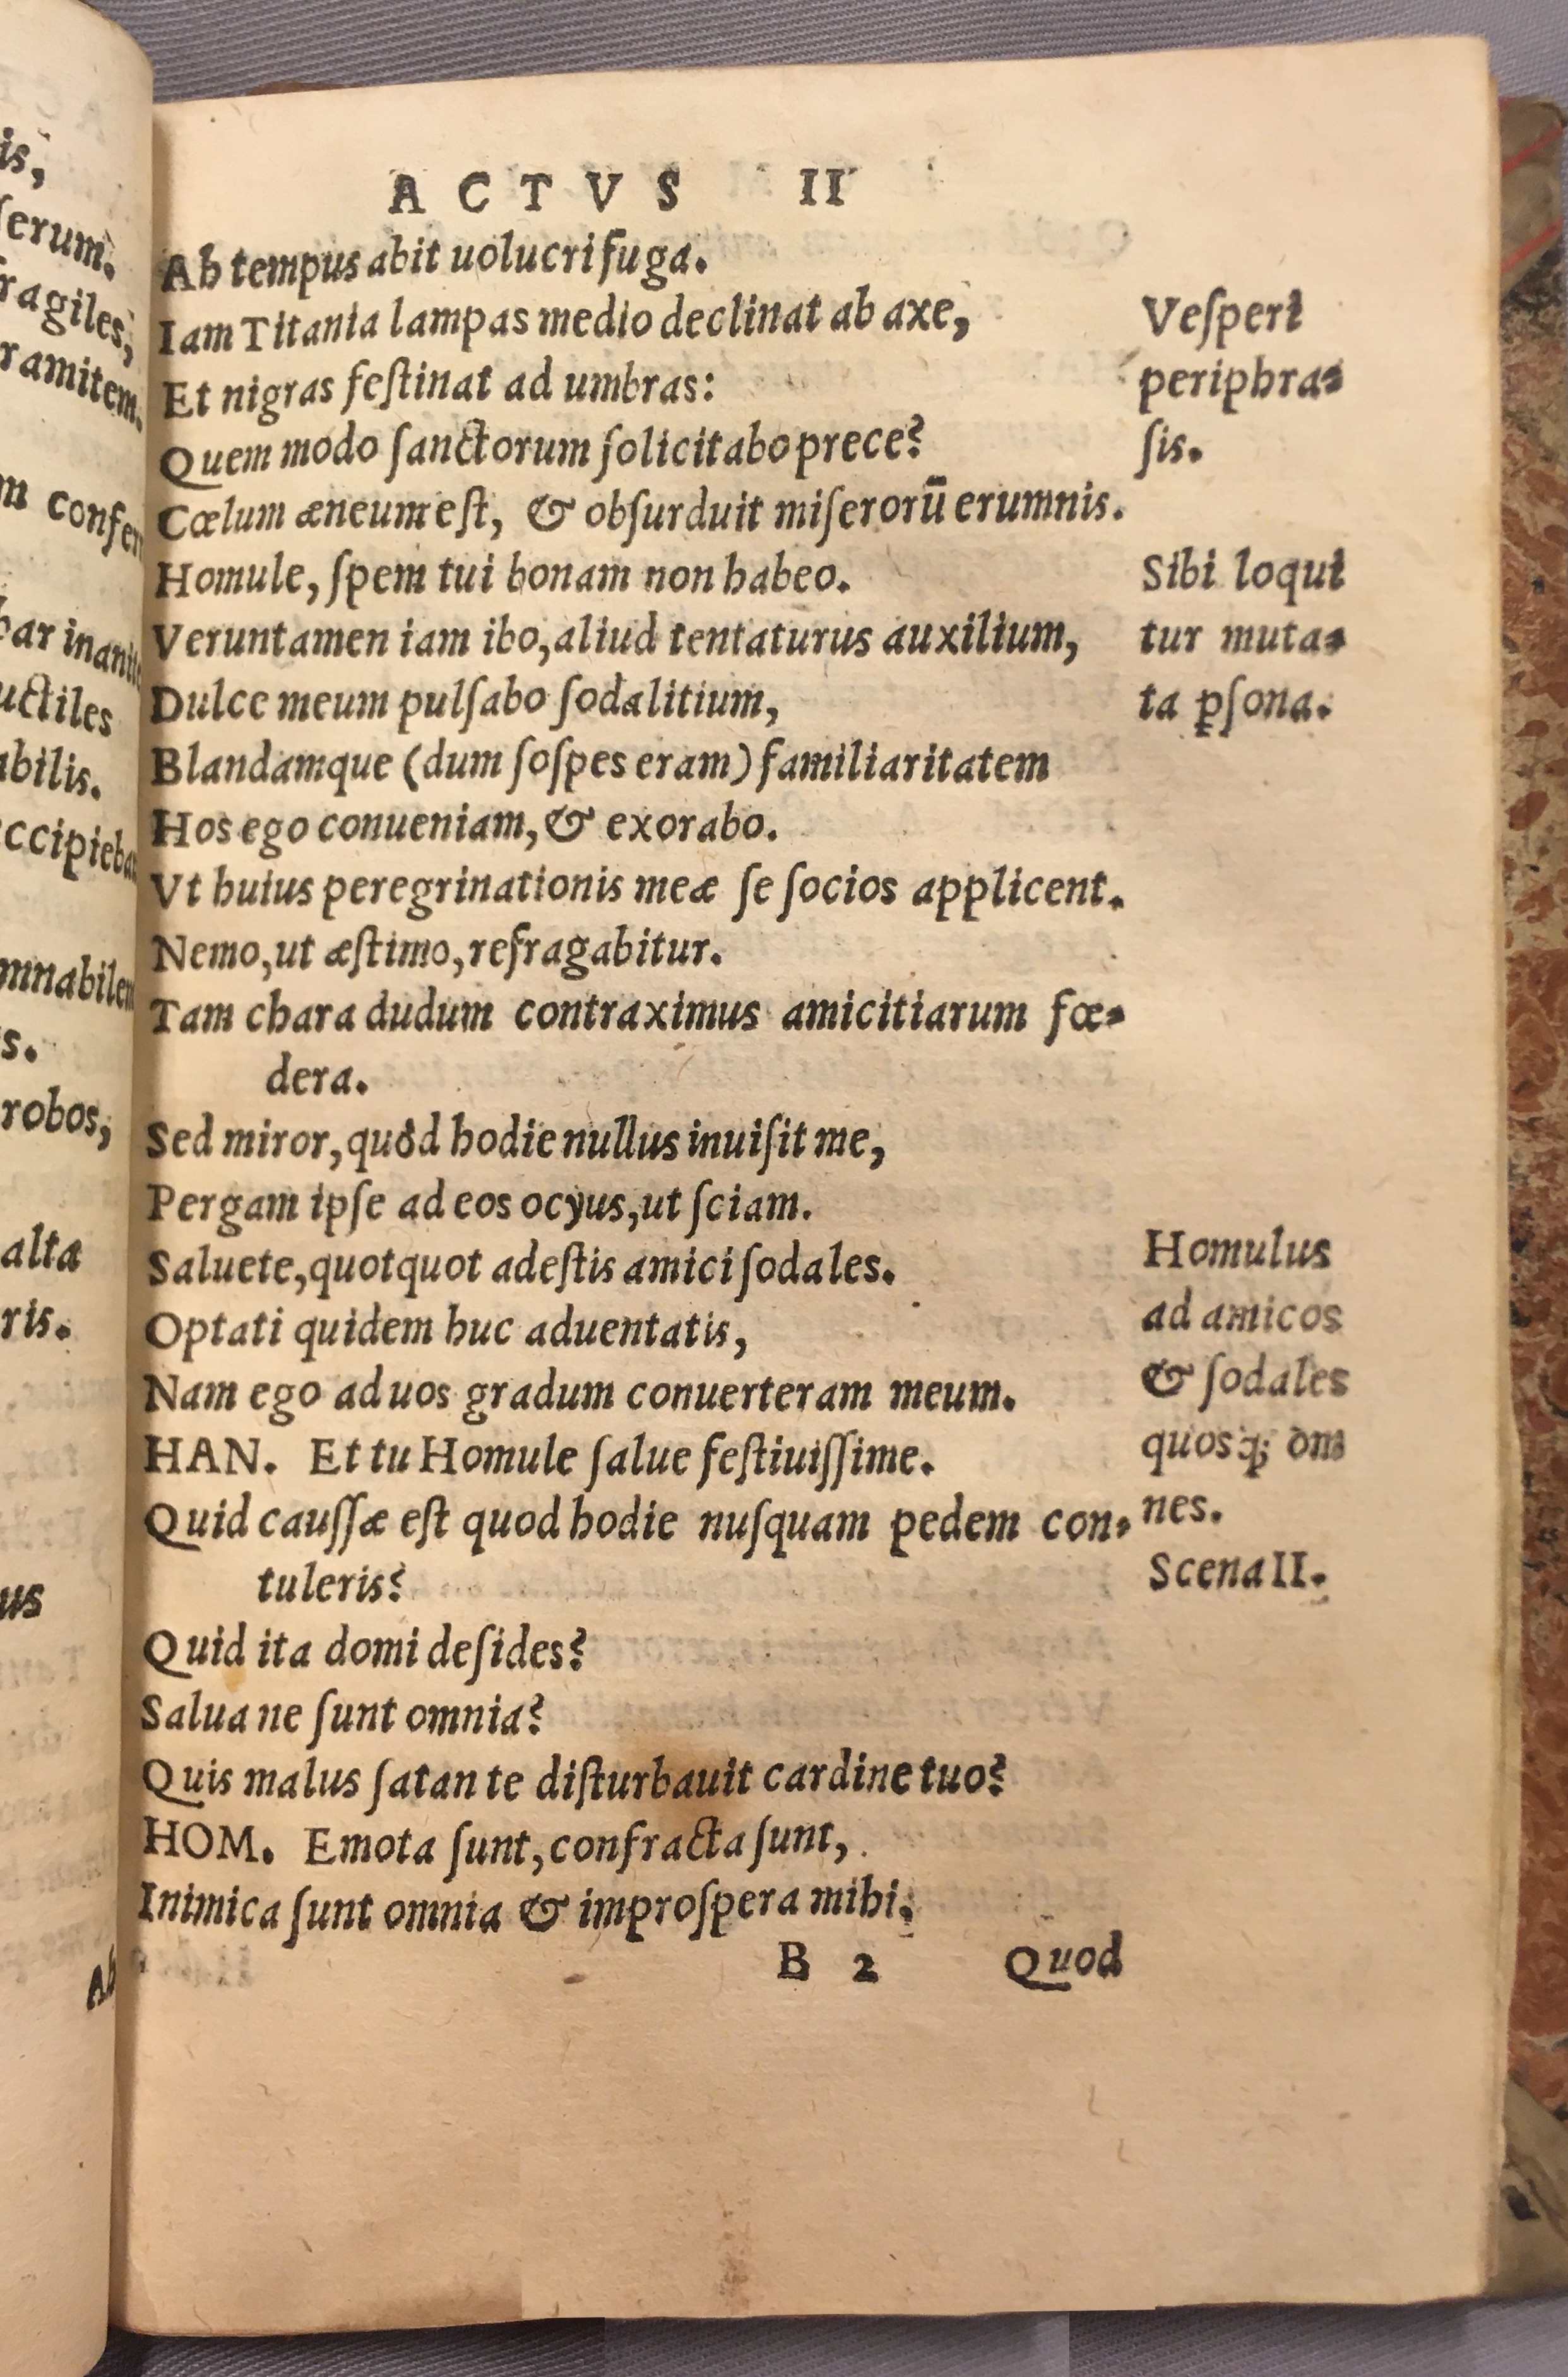 is,
ſerum.
ragiles,
ramitem.
confer
uctiles
abilis.
s.
robos,
alta
ris.
us
Ab
ACTVS II
Ab tempus abit uolucri fuga.
Iam Titania lampas medio declinat ab axe,
Et nigras feſtinat ad umbras:
Quem modo ſanctorum ſolicitabo prece?
Cœlum æneum eſt, & obſurduit miſerorū erumnis.
Homule, ſpem tui bonam non habeo.
Veruntamen iam ibo, aliud tentaturus auxilium,
Dulce meum pulſabo ſodalitium,
Blandamque (dum ſoſpes eram) familiaritatem
Hos ego conueniam, & exorabo.
Vt huius peregrinationis meæ ſe ſocios applicent.
Nemo, ut æſtimo, refragabitur.
Tam chara dudum contraximus amicitiarum fœ-
dera.
Sed miror, quòd hodie nullus inuiſit me,
Pergam ipſe ad eos ocyus, ut ſciam.
Saluete, quotquot adeſtis amici ſodales.
Optati quidem huc aduentatis,
Nam ego ad uos gradum conuerteram meum.
HAN. Et tu Homule ſalue feſtiuiſſime.
Quid cauſſæ eſt quod hodie nuſquam pedem con-
tuleris?
Quid ita domi deſides?
Salua ne ſunt omnia?
Quis malus ſatan te diſturbauit cardine tuo?
HOM. Emota ſunt, confracta ſunt,
Inimica ſunt omnia & improſpera mihi.
B 2 Quod
Veſperi
periphra-
ſis.
Sibi loqui
tur muta-
ta ꝑſona.
Homulus
ad amicos
& ſodales
quosq; om
nes.
Scena II.